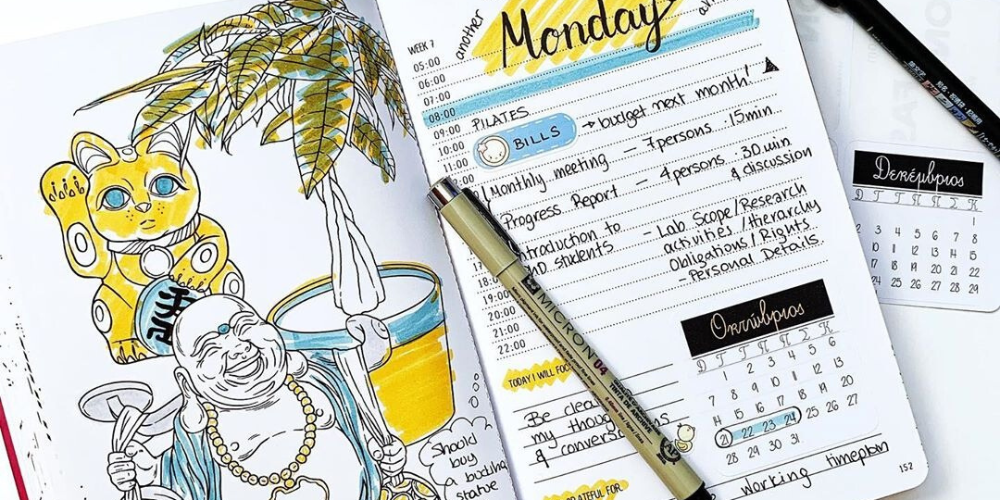 Should
buy
a buddha
statue
another
Monday
WEEK 7
05:00
06:00
07:00
08:00
09:00
10:00
11:00
18:00
19:00
20:00
21:00
22:00
PILATES
BILLS
→ budget next month!
Monthly meeting – 7persons . 15min
Progress Report – 4persons . 30min
& discussion
Introduction to
students – Lab Scope/Research
activities / Hierarchy
Obligations / Rights
- Personal Details.
TODAY I WILL FOC
Be clea
my thou
& conver
GRATEFUL FOR
working timeplan
152
Οκτώβριος
Δ Τ Τ Π Π Σ Κ
1 2 3 4 5 6
7 8 9 10 11 12 13
14 15 16 17 18 19 20
21 22 23 24 25 26 27
28 29 30 31
MICRON 04
Δεκέμβριος
Δ Τ Τ Π Π Σ Κ
1
2 3 4 5 6 7 8
10 11 12 13 14 15
17 18 19 20 21 22
24 25 26 27 28 29